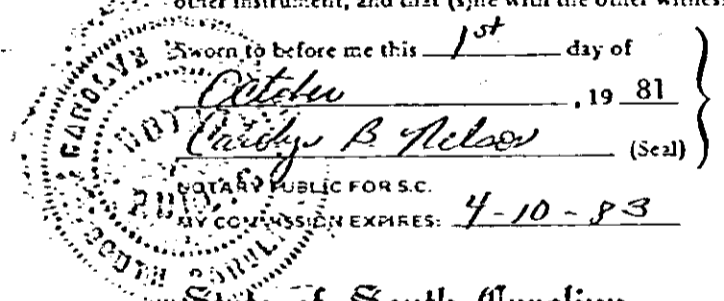 other instrument, and that (s)he with the other witness
Sworn to before me this 1st day of
October , 19 81
Carolyn B. Nelson (Seal)
NOTARY PUBLIC FOR S.C.
MY COMMISSION EXPIRES: 4-10-83
State of South Carolina
CAROLYN
NOTARY
PUBLIC
SOUTH CAROLINA